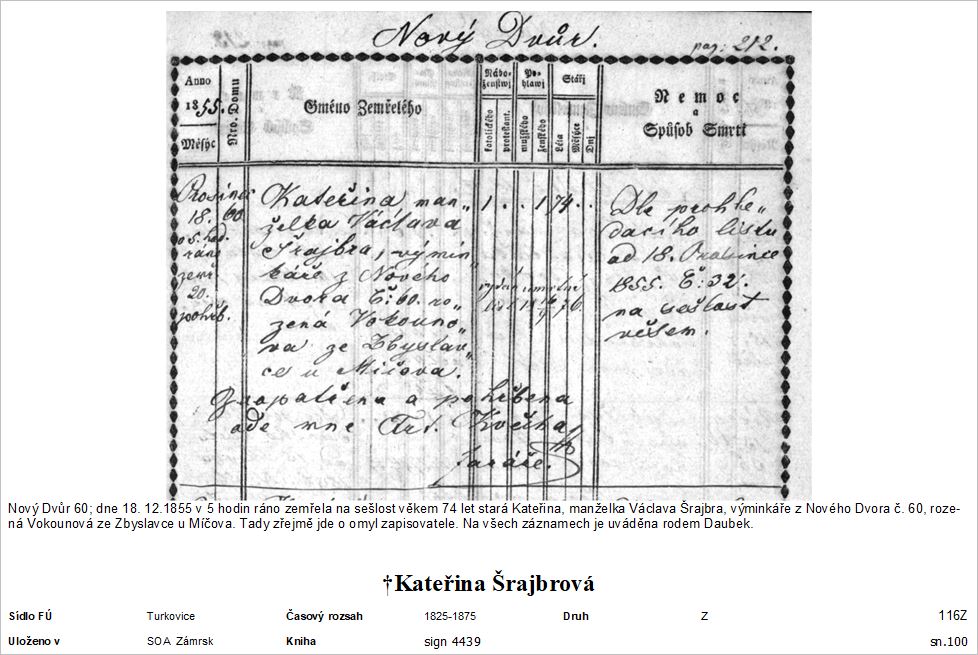 Nový Dvůr.
pag: 212.
Anno
1855.
Měsýc
Nro. Domu
Gméno Zemřelého
Nábo-
ženstwj
katolického
protestant.
Po-
hlawj
mužského
ženského
Stářj
Léta
Měsýce
Dnj
Nemoc
a
Spůsob Smrti
Prosinec
18. 60
o 5. hod.
ráno
zemř.
20.
pohřb.
Kateřina man„
želka Václava
Šrajbra, výmin„
káře z Nového
Dvora Č: 60. ro„
zená Vokouno„
va ze Zbyslav„
ce u Míčova.
Zaopatřena a pohřbena
ode mne Frt. Květha,
faráře.
1 . . 1 74 . .
Dle prohle„
dacího listu
od 18. Prosince
1855. Č: 32.
na sešlost
věkem.
Nový Dvůr 60; dne 18. 12.1855 v 5 hodin ráno zemřela na sešlost věkem 74 let stará Kateřina, manželka Václava Šrajbra, výminkáře z Nového Dvora č. 60, roze-
ná Vokounová ze Zbyslavce u Míčova. Tady zřejmě jde o omyl zapisovatele. Na všech záznamech je uváděna rodem Daubek.
†Kateřina Šrajbrová
Sídlo FÚ Turkovice Časový rozsah 1825-1875 Druh Z 116Z
Uloženo v SOA Zámrsk Kniha sign 4439 sn.100